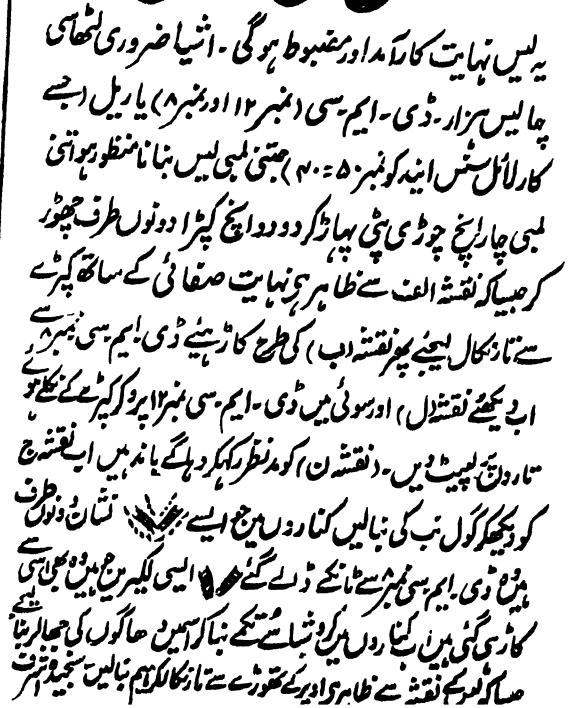 یہ لیس نہایت کارآمد اور مضبوط ہوگی۔ اشیا ضروری لٹھا سی
چالیس ہزار۔ ڈی۔ ایم۔ سی (نمبر ۱۲ اور نمبر ۸) یا ریل (جسے
کارلائل سنس اینڈ کو نمبر ۵۰ = ۴۰) جتنی لمبی لیس بنانا منظور ہو اتنی
لمبی چار انچ چوڑی پٹی پھاڑ کر دو دو انچ کپڑا دونوں طرف چھوڑ
کر جیسا کہ نقشہ الف سے ظاہر ہی نہایت صفائی کے ساتھ کپڑے
سے تار نکال لیجئے پھر نقشہ (ب) کی طرح کاڑہیئے ڈی۔ ایم۔ سی نمبر ۸ سے
اب دیکھئے نقشہ (ل) اور سوئی میں ڈی۔ ایم۔ سی نمبر ۱۲ پرو کر کپڑے کے نکلے ہوئے
تاروں پر لپیٹ دیں۔ (نقشہ ن) کو مدنظر رکھکر دہاگے باندہیں اب نقشہ ج
کو دیکھکر گول نب کی بنالیں کناروں میں جو ایسے نشان دونوں طرف
ہیں وہ ڈی۔ ایم سی نمبر ۸ سے ٹانکے ڈالے گئے ایسی لکیریں جو ہیں وہ بھی اسی سے
کاڑہی گئی ہیں اب کناروں میں کروشیا سے تکے بناکر اسمیں دھاگوں کی جھالر بنا لیجئے
جیسا کہ نقشہ سے ظاہر ہی اوپر کے تھوڑے سے تار نکالکر بیم بنالیں